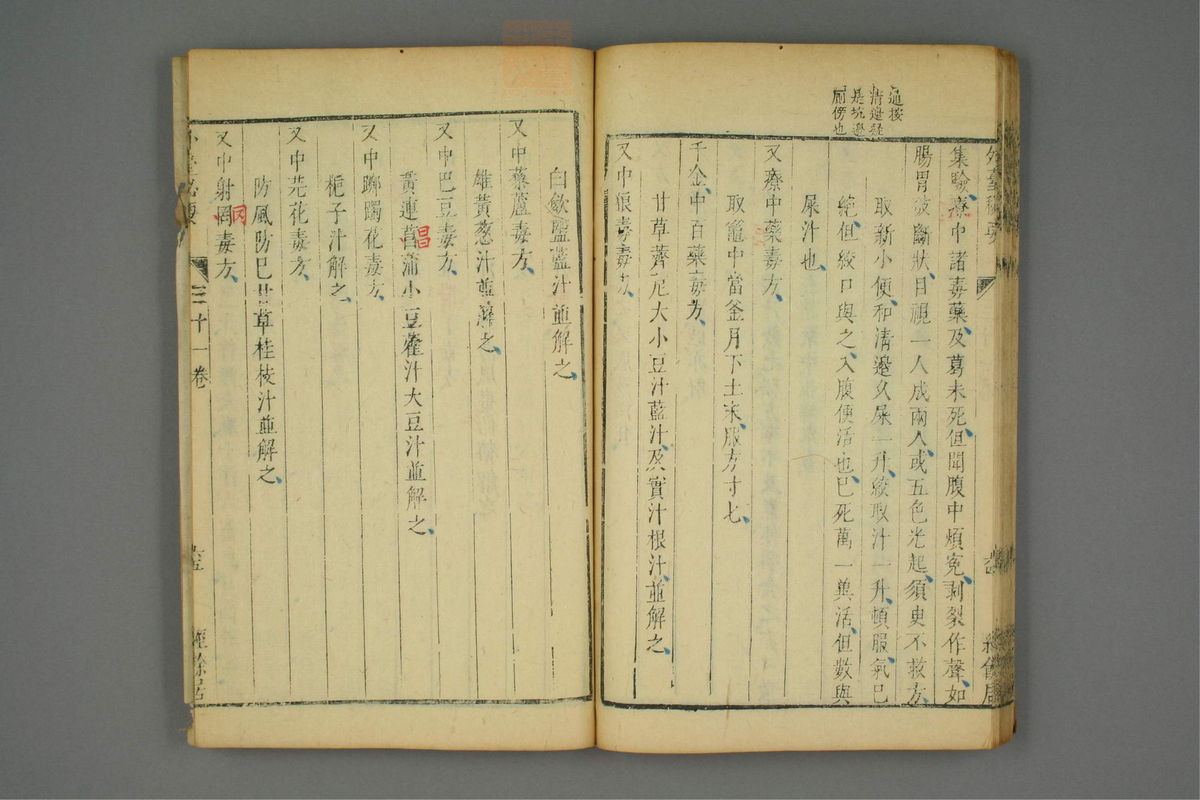 集驗療中諸毒藥及葛未死但聞腹中煩寃剥裂作聲如
腸胃彼斷狀目視一人成兩人或五色光起須臾不救方
取新小便和清邊久屎一升絞取汁一升頓服氣已
絶但絞口與之入腹便活也已死萬一兾活但數與
屎汁也
又療中藥毒方
取竈中當釜月下土末服方寸七
千金中百藥毒方
甘草薺苨大小豆汁藍汁及實汁根汁並解之
又中狼毒毒方
按
清邊疑
是坑邊
廁傍也
白斂鹽藍汁並解之
又中藜蘆毒方
雄黃葱汁並解之
又中巴豆毒方
黃連菖蒲小豆藿汁大豆汁並解之
昌
又中躑躅花毒方
梔子汁解之
又中芫花毒方
防風防巳甘草桂枝汁並解之
又中射罔毒方
罔
三十一卷
經餘居